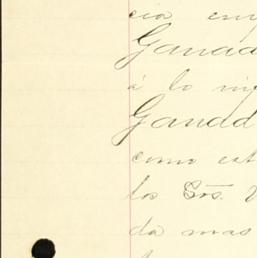 cia em
Ganad
á lo in
Ganad
como est
los Sres.
da mas